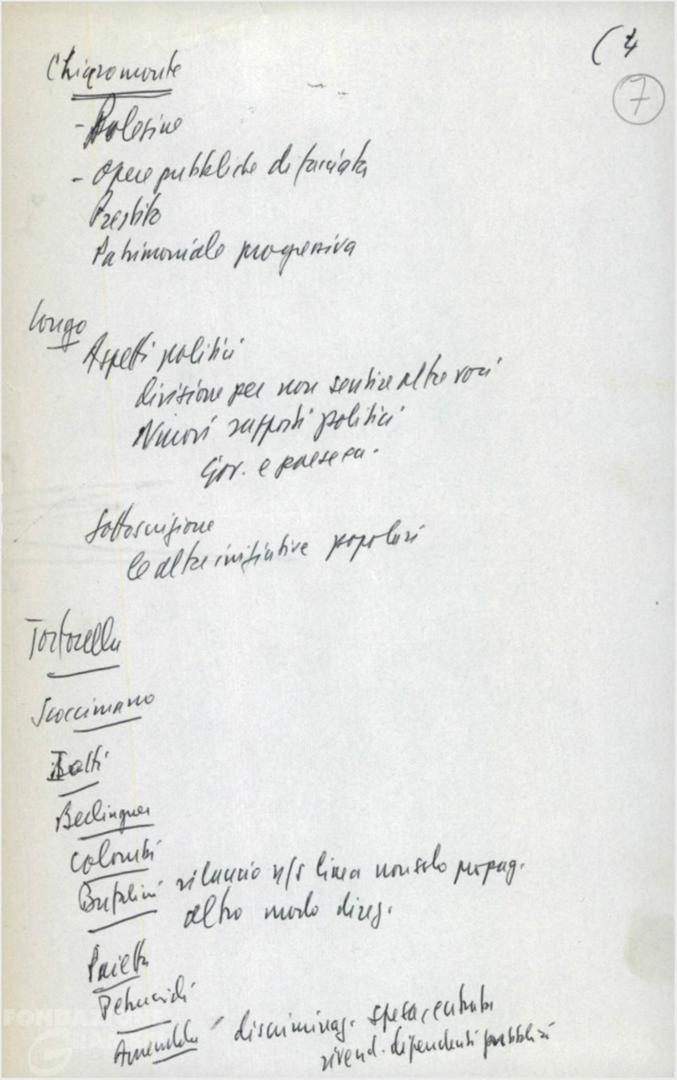 ( 4
7
Chiaromonte
- Polesine
- Opere pubbliche di facciata
Prestito
Patrimoniale progressiva
Longo
Aspetti politici
divisione per non sentire altre voci
Nuovi rapporti politici
Gov. e paese
Sottoscrizione
le altre iniziative popolari
Tortorella
Scoccimarro
Berlinguer
Colombi
Bufalini rilancio n/s linea non solo propag.
altro modo direz.
Paietta
Petruccioli
Amendola discriminaz. spesa entrata
rivend. dipendenti pubblici
FONDAZIONE